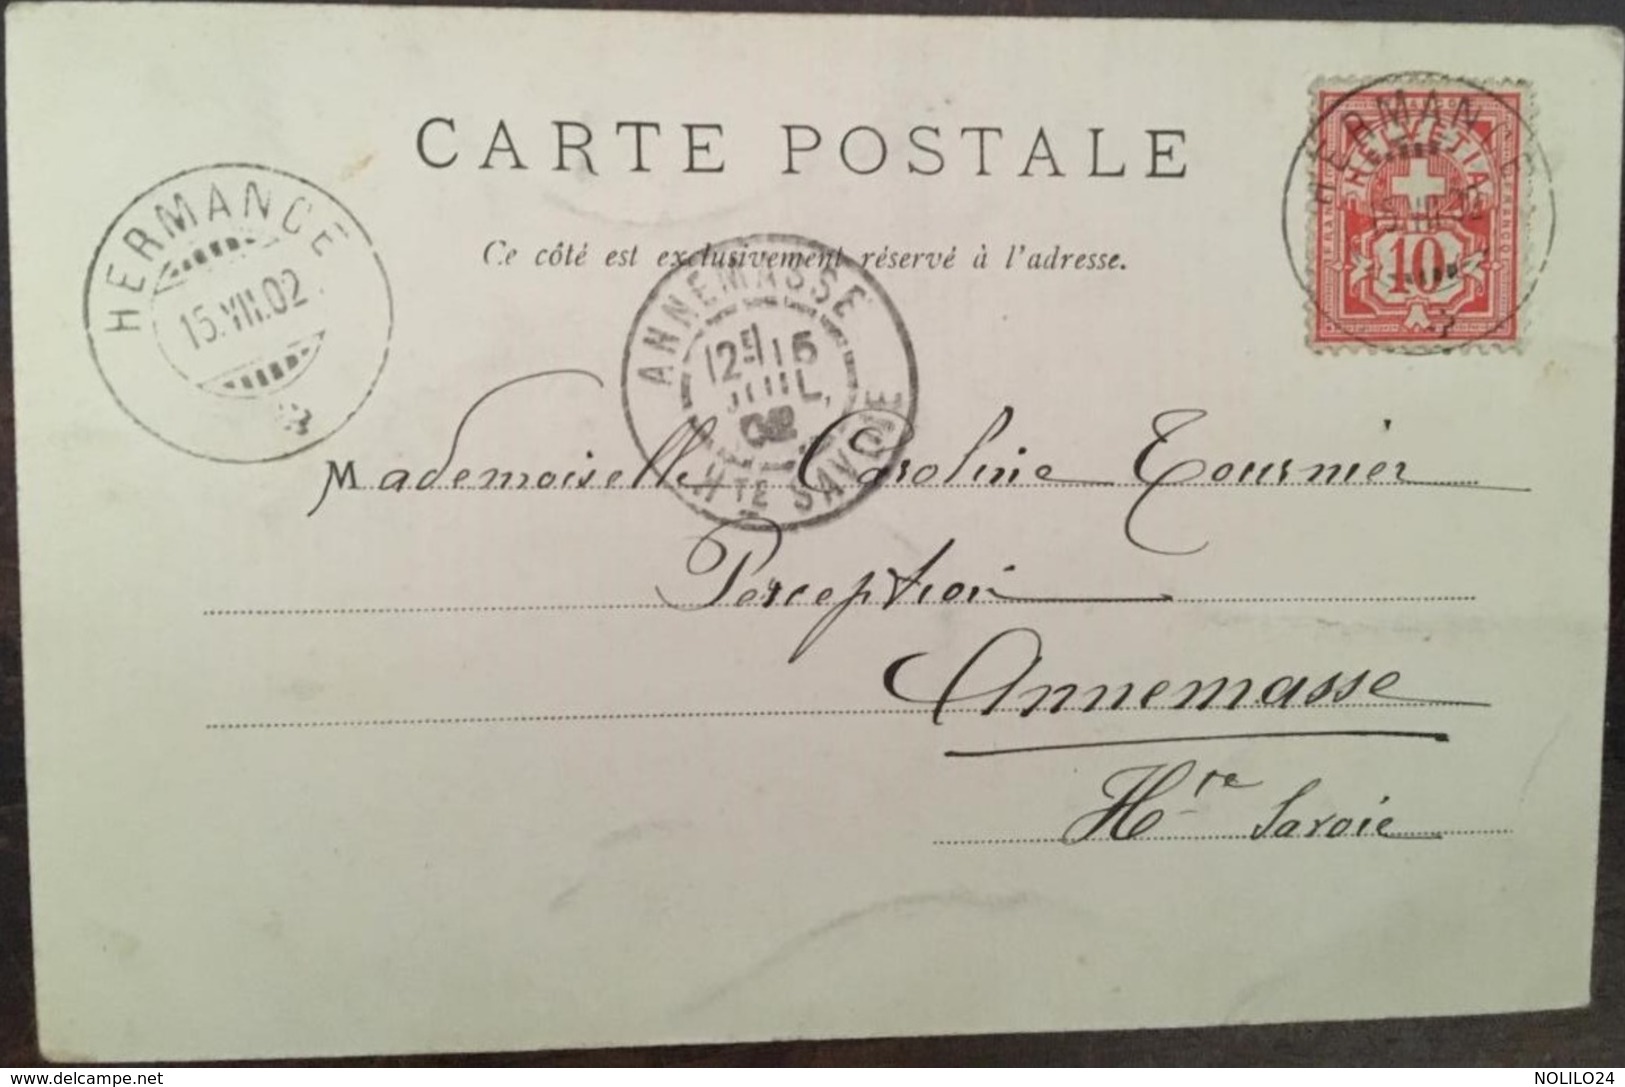 CARTE POSTALE
Ce côté est exclusivement réservé à l'adresse.
HERMANCE
15.VII.02
ANNEMASSE
12E 15
JUIL.
02
HTE SAVOIE
HERMANCE
HELVETIA
FRANCO
10
Mademoiselle Caroline Tournier
Perception
Annemasse
Hte Savoie
delcampe.net
NOLILO24